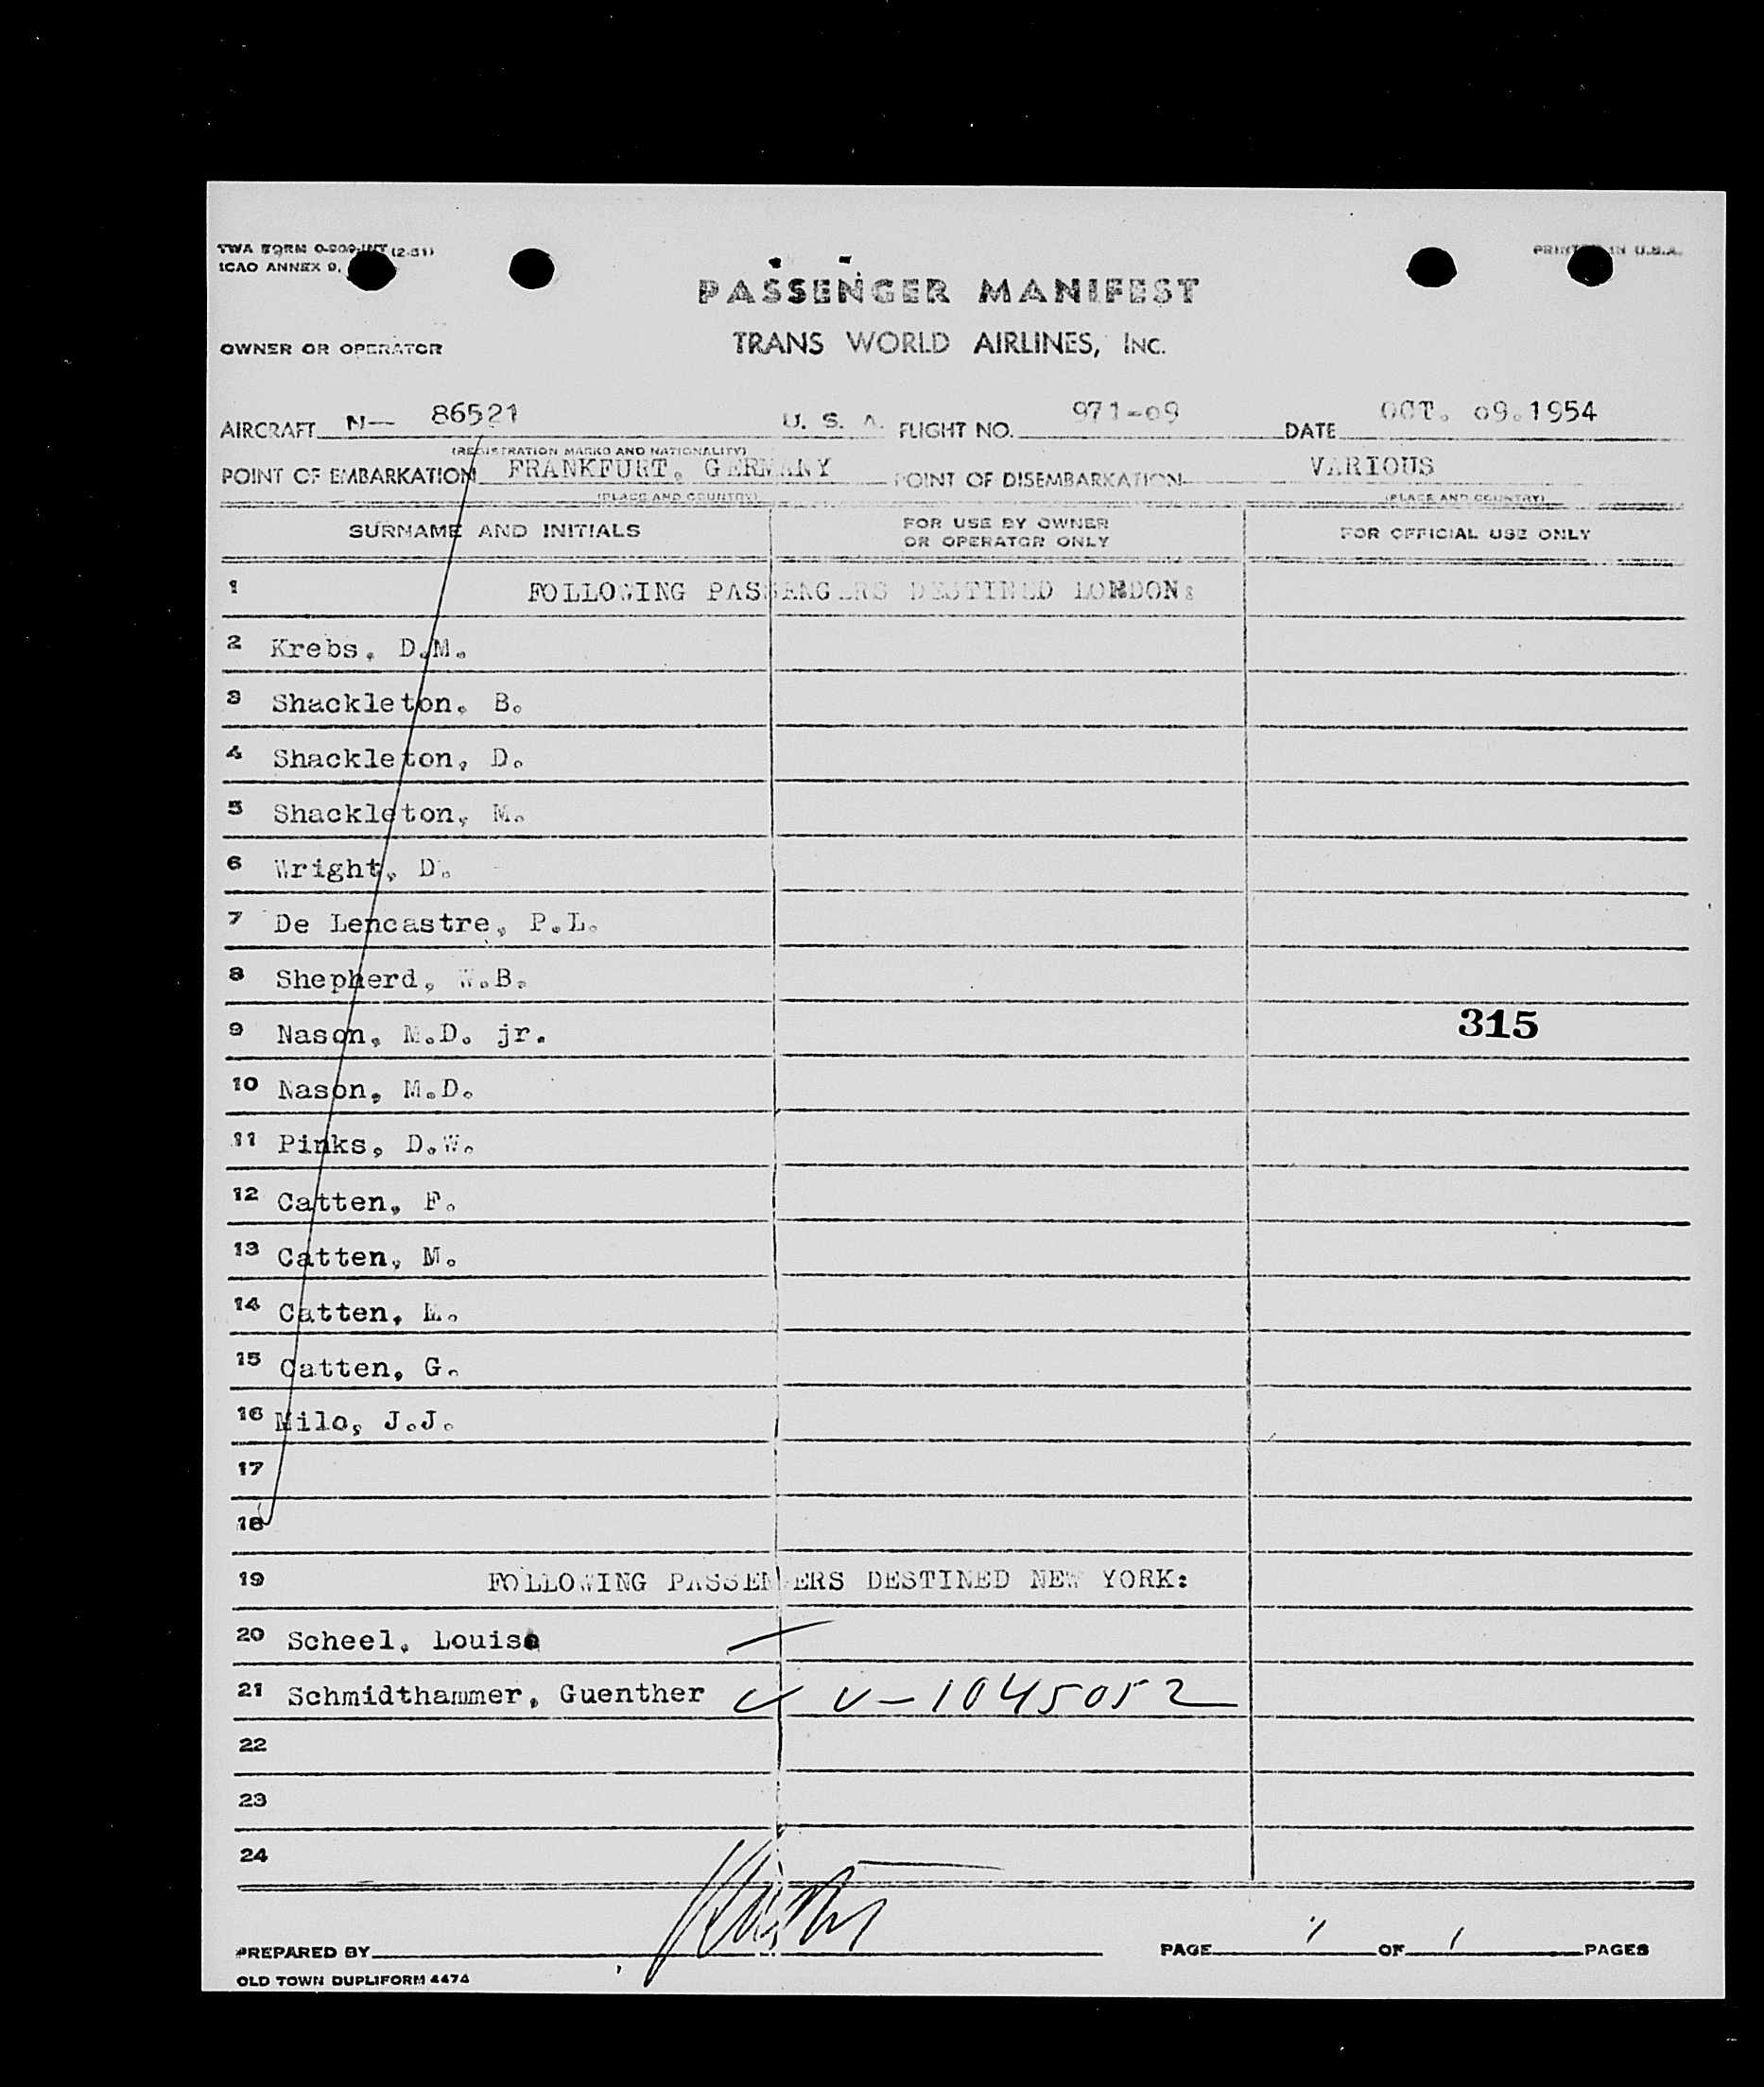 TWA FORM O-909-INT (2-51)
ICAO ANNEX 9,
PRINTED IN U.S.A.
PASSENGER MANIFEST
OWNER OR OPERATOR
TRANS WORLD AIRLINES, INC.
AIRCRAFT N— 86521 U. S. A. FLIGHT NO. 971-09 DATE OCT. 09. 1954
(REGISTRATION MARKS AND NATIONALITY)
POINT OF EMBARKATION FRANKFURT, GERMANY POINT OF DISEMBARKATION VARIOUS
(PLACE AND COUNTRY) (PLACE AND COUNTRY)
SURNAME AND INITIALS
FOR USE BY OWNER
OR OPERATOR ONLY
FOR OFFICIAL USE ONLY
1 FOLLOWING PASSENGERS DESTINED LONDON:
2 Krebs, D.M.
3 Shackleton, B.
4 Shackleton, D.
5 Shackleton, M.
6 Wright, D.
7 De Lencastre, P.L.
8 Shepherd, W.B.
9 Nason, M.D. jr. 315
10 Nason, M.D.
11 Pinks, D.W.
12 Catten, F.
13 Catten, M.
14 Catten, M.
15 Catten, G.
16 Milo, J.J.
17
18
19 FOLLOWING PASSENGERS DESTINED NEW YORK:
20 Scheel, Louise
21 Schmidthammer, Guenther V-1045052
22
23
24
PREPARED BY PAGE 1 OF 1 PAGES
OLD TOWN DUPLIFORM 4474